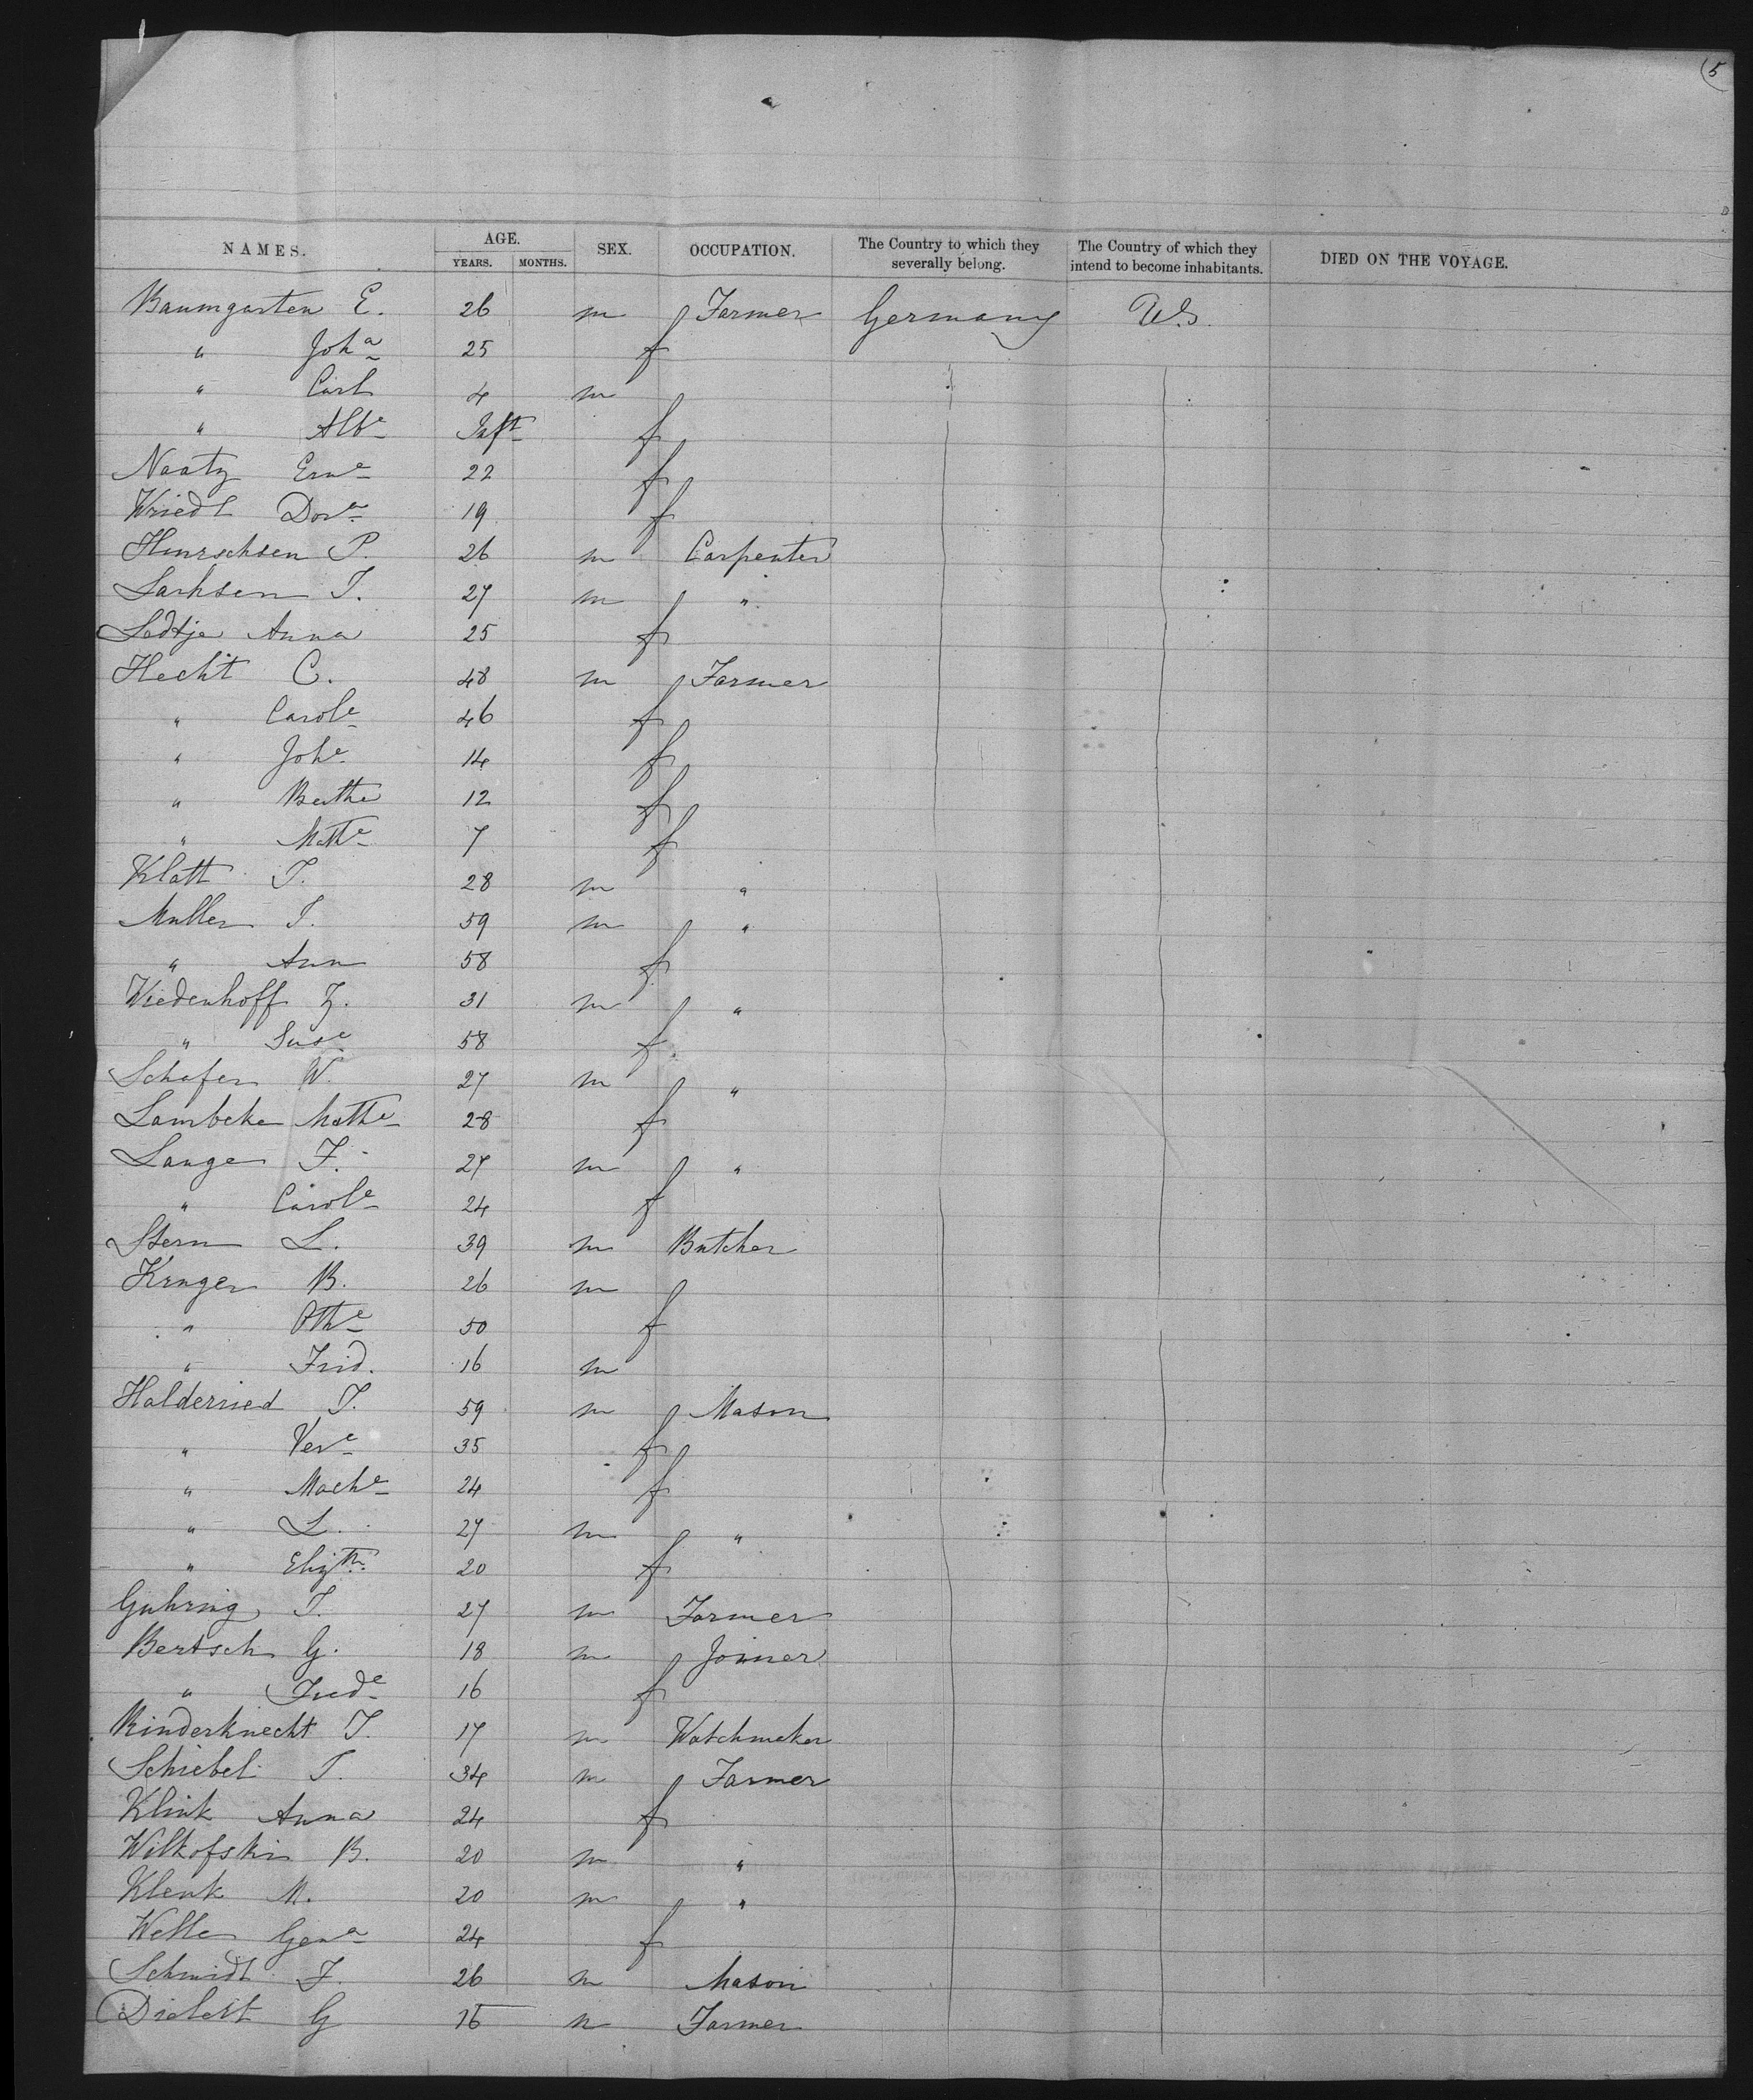 5
NAMES. AGE. SEX. OCCUPATION. The Country to which they severally belong. The Country of which they intend to become inhabitants. DIED ON THE VOYAGE.
YEARS. MONTHS.
Baumgarten E. 26 m Farmer Germany U.S.
" Joha 25 f
" Carl 4 m
" Albe Inft f
Naatz Erne 22 f
Wriedt Dora 19 f
Hinrschsen P. 26 m Carpenter
Larhsen J. 27 m "
Ledtje Anna 25 f
Hecht C. 48 m Farmer
" Carole 46 f
" Johe 14 f
" Bertha 12 f
" Mathe 7 f
Klatt J. 28 m "
Muller J. 59 m "
" Ann 58 f
Wiedenhoff Z. 31 m "
" Suse 58 f
Schafer W. 27 m "
Lambcke Mathe 28 f
Lange F. 27 m "
" Carole 24 f
Stern L. 39 m Butcher
Kruger B. 26 m
" Othe 50 f
" Frid. 16 m
Halderried J. 59 m Mason
" Vere 35 f
" Mache 24 f
" L. 27 m "
" Elizth 20 f
Guhring J. 27 m Farmer
Bertsch G. 18 m Joiner
" Frede 16 f
Rinderknecht J. 17 m Watchmaker
Schiebel J. 34 m Farmer
Klink Anna 24 f
Wilkofski B. 20 m "
Klenk M. 20 m "
Welle Gena 24 f
Schmidt F. 26 m Mason
G 15 m Farmer